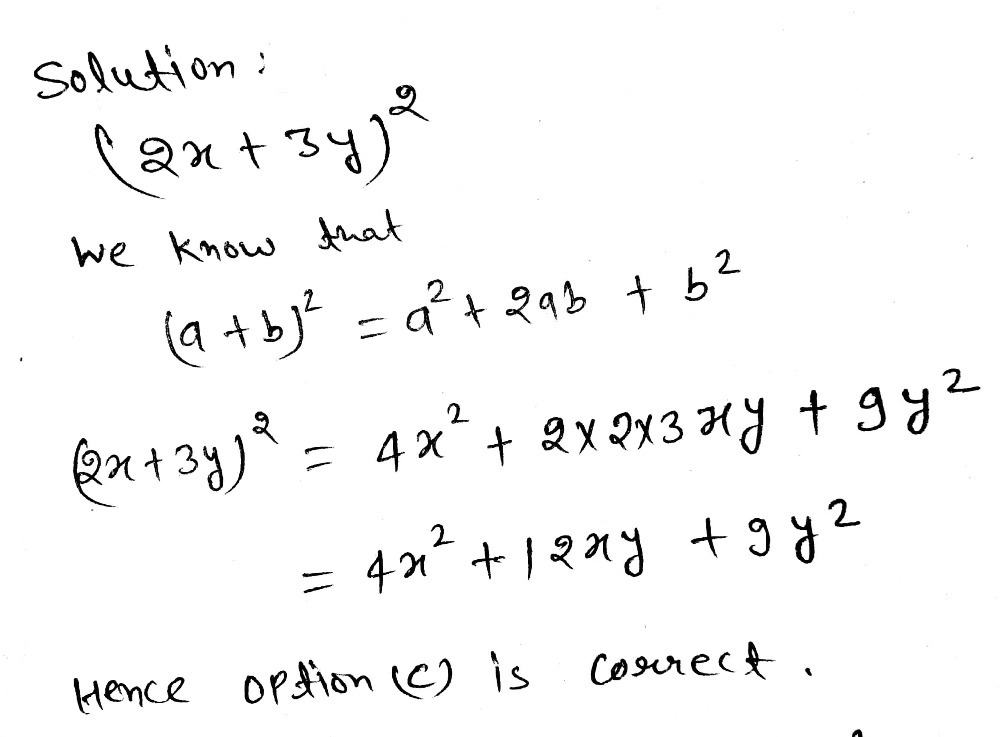 Solution :
(2x + 3y)²
We know that
(a + b)² = a² + 2ab + b²
(2x + 3y)² = 4x² + 2×2×3 xy + 9y²
= 4x² + 12xy + 9y²
Hence option (C) is correct .